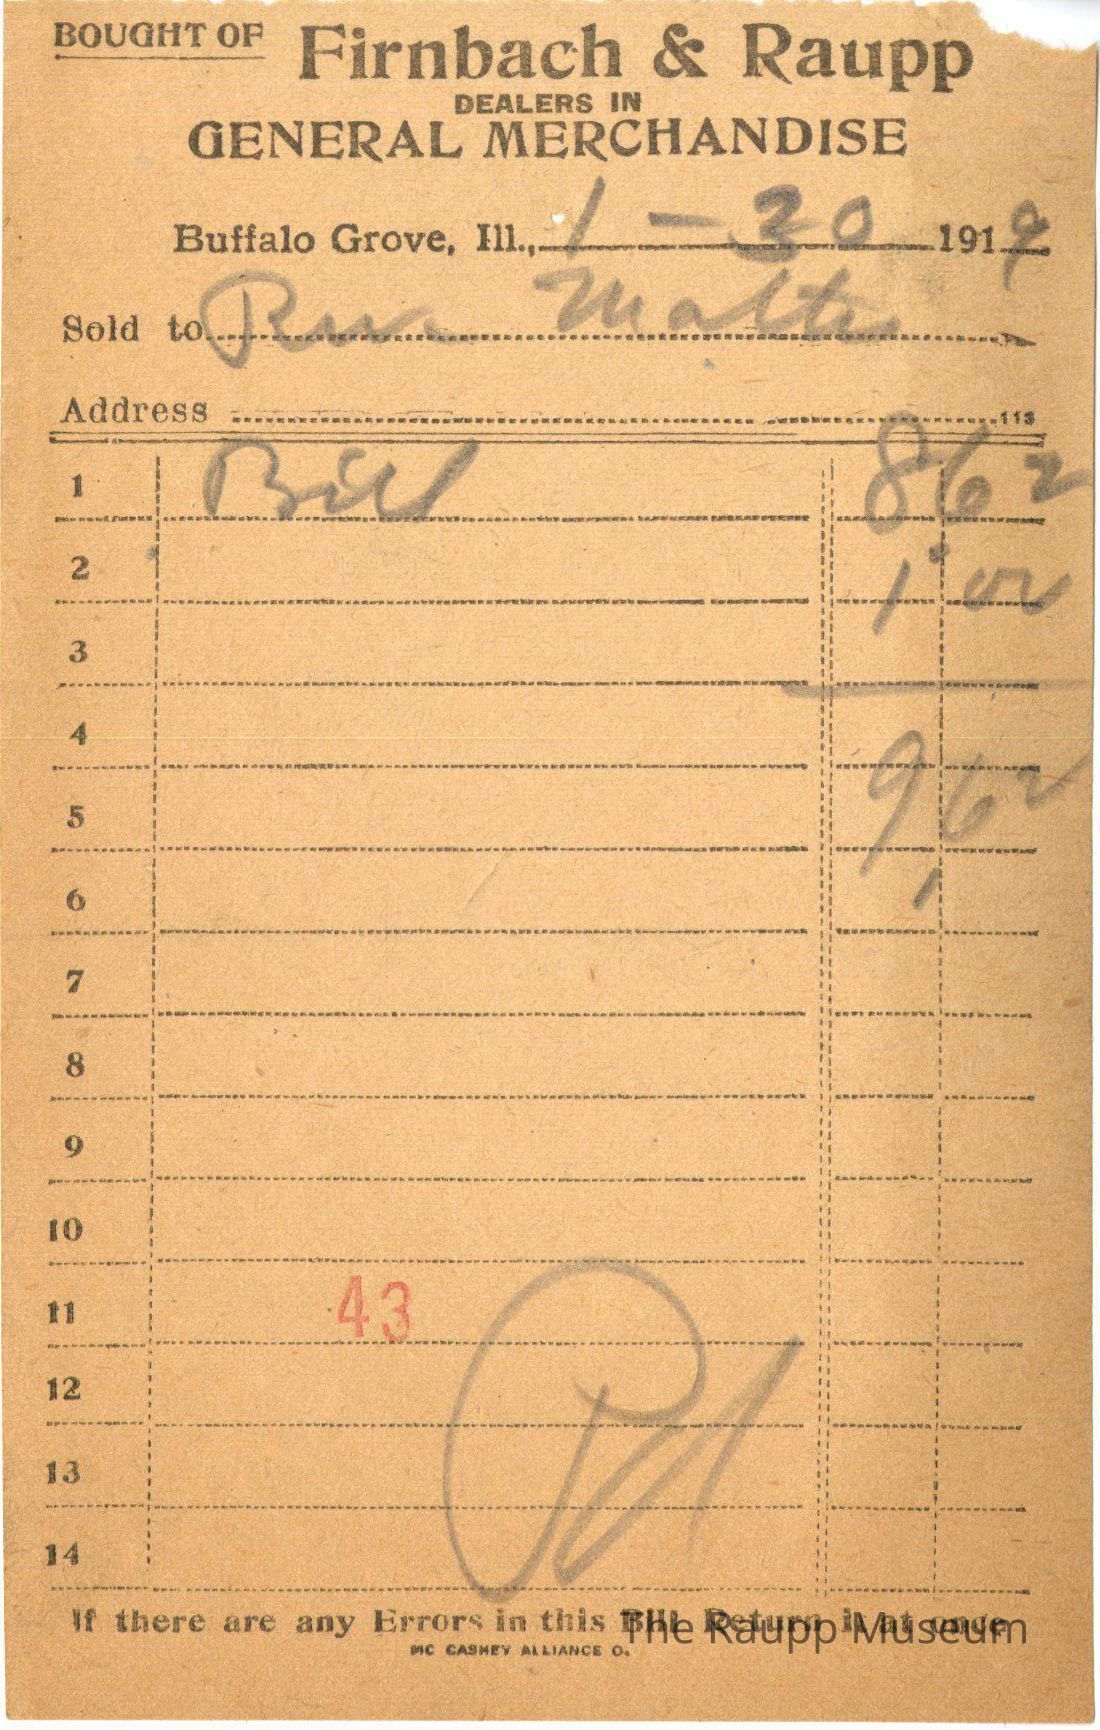 BOUGHT OF Firnbach & Raupp
DEALERS IN
GENERAL MERCHANDISE
Buffalo Grove, Ill., 1-20 1919
Sold to
Address 113
1 Bill 8 62
2 1 00
3
4 9 62
5
6
7
8
9
10
11 43
12
13
14
If there are any Errors in this Bill Return it at once
The Raupp Museum
MC CASKEY ALLIANCE O.